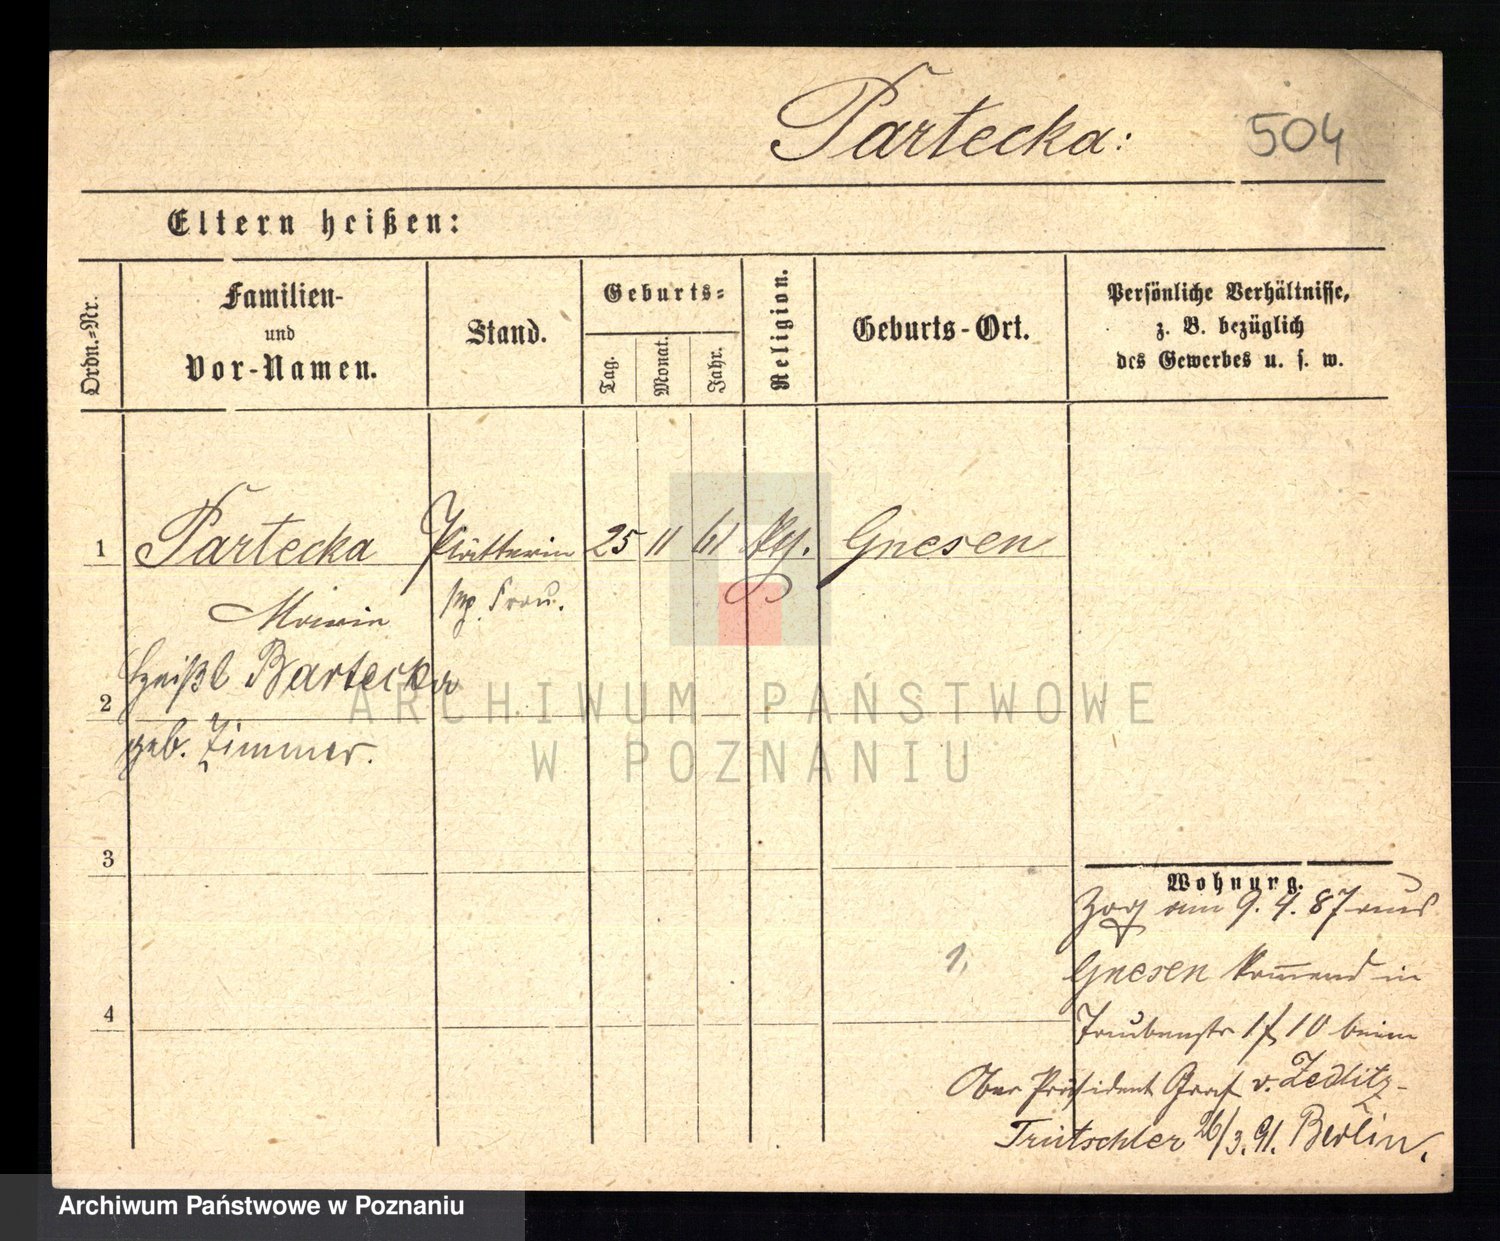 Partecka:
504
Eltern heißen:
Ordn.-Nr.
Familien-
und
Vor-Namen.
Stand.
Geburts-
Tag.
Monat.
Jahr.
Religion.
Geburts-Ort.
Persönliche Verhältnisse,
z. B. bezüglich
des Gewerbes u. s. w.
1 Partecka Plätterin 25 11 61 Gnesen
Frau.
heißt Bartecka
2
geb. Zimmer.
3
Wohnung.
Zog am 9. 4. 87 aus
1,
Gnesen kommend in
4
Taubenstr 10 beim
Ober Präsident Graf v. Zedlitz-
Trütschler 26/3.91. Berlin.
ARCHIWUM PAŃSTWOWE
W POZNANIU
Archiwum Państwowe w Poznaniu